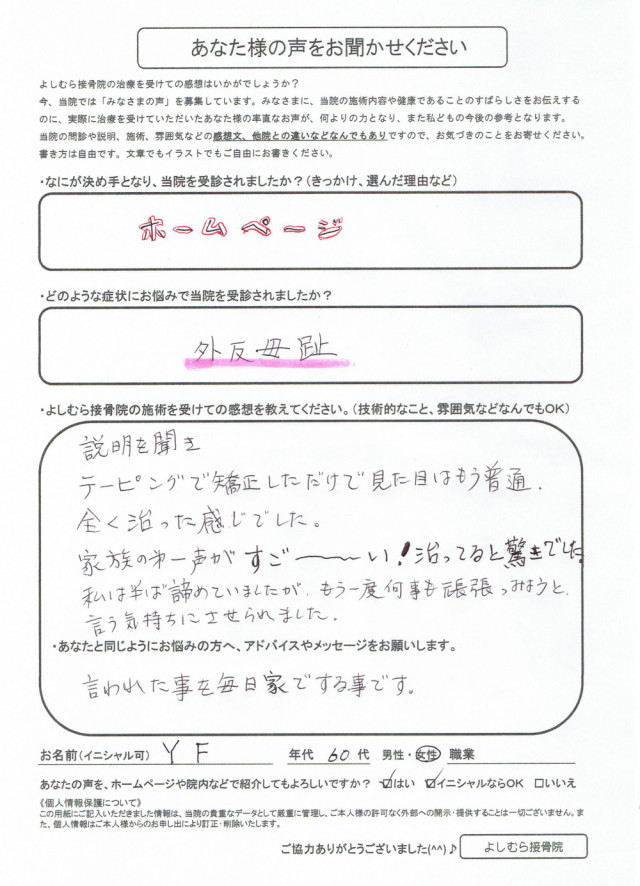 あなた様の声をお聞かせください
よしむら接骨院の治療を受けての感想はいかがでしょうか?
今、当院では「みなさまの声」を募集しています。みなさまに、当院の施術内容や健康であることのすばらしさをお伝えする
のに、実際に治療を受けていただいたあなた様の率直なお声が、何よりの力となり、また私どもの今後の参考となります。
当院の問診や説明、施術、雰囲気などの感想文、他院との違いなどなんでもありですので、お気づきのことをお寄せください。
書き方は自由です。文章でもイラストでもご自由にお書きください。
・なにが決め手となり、当院を受診されましたか?(きっかけ、選んだ理由など)
ホームページ
・どのような症状にお悩みで当院を受診されましたか?
外反母趾
・よしむら接骨院の施術を受けての感想を教えてください。(技術的なこと、雰囲気などなんでもOK)
説明を聞き
テーピングで矯正しただけで見た目はもう普通.
全く治った感じでした。
家族の第一声がすご〜〜〜い!治ってると驚きでした
私は半ば諦めていましたが、もう一度何事も頑張ってみようと、
言う気持ちにさせられました.
・あなたと同じようにお悩みの方へ、アドバイスやメッセージをお願いします。
言われた事を毎日家でする事です。
お名前(イニシャル可) Y F 年代 60 代 男性・女性 職業
あなたの声を、ホームページや院内などで紹介してもよろしいですか? ☑はい ☑イニシャルならOK □いいえ
《個人情報保護について》
この用紙にご記入いただきました情報は、当院の貴重なデータとして厳重に管理し、ご本人様の許可なく外部への開示・提供することは一切ございません。ま
た、個人情報はご本人様からのお申し出により訂正・削除いたします。
ご協力ありがとうございました(^^)♪ よしむら接骨院